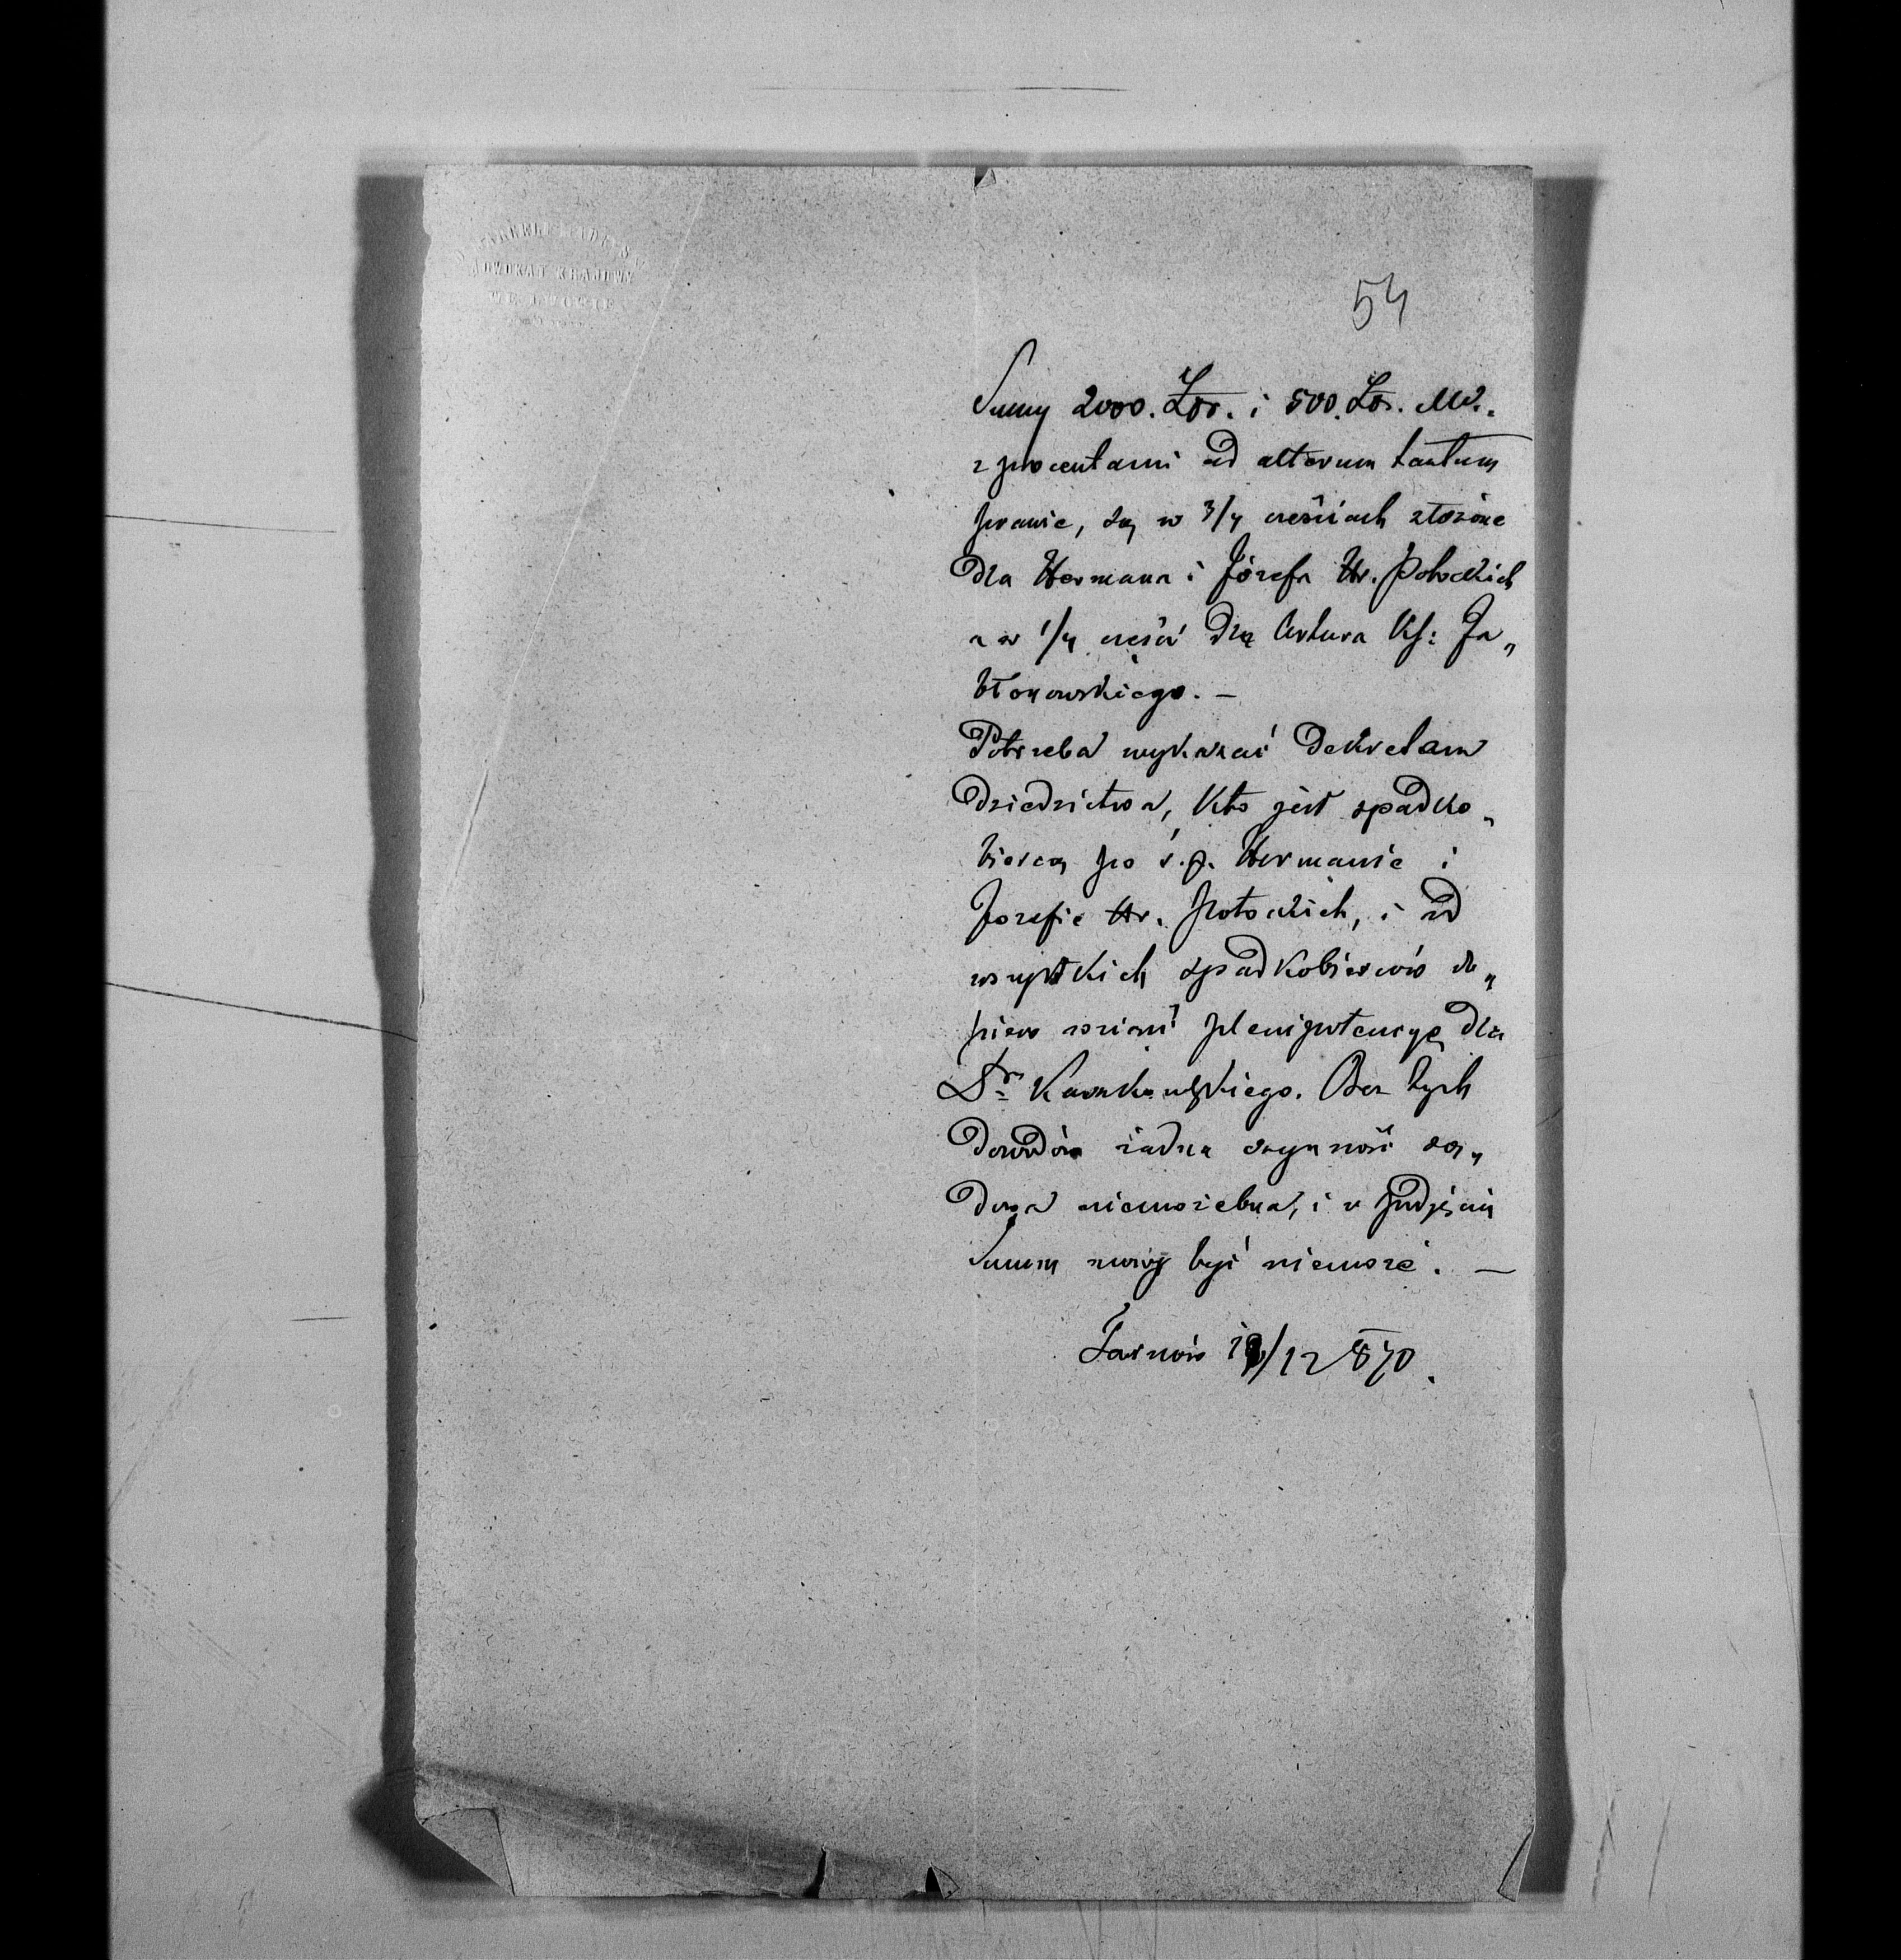 ADWOKAT KRAJOWY
WE LWOWIE
54
Sumy 2000. Złr. i 500. Złr. MK.
z procentami ad alterum tantum
prawie, są w 3/4 cześciach złożone
dla Hermana i Józefa Hr. Potockich
a w 1/4 cześci dla Artura Ks: Ja„
błonowskiego. –
Potrzeba wykazać dekretam
dziedzictwa, Kto jest spadko„
biercą po ś.p. Hermanie i
Jozefie Hr. Potockich, i od
wszystkich spadkobierców do„
piero wziąść plenipotencyę dla
Dr. Bez tych
dowodów żadna czynność są„
dowa niemożebna, i o podjęciu
Summ mowy być niemoże. —
Tarnów /12 870.